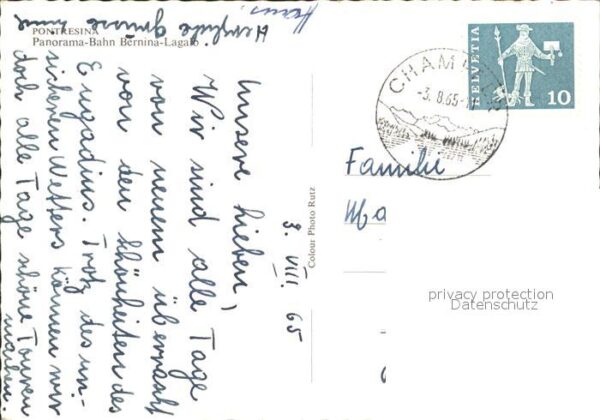 PONTRESINA
Panorama-Bahn Bernina-Lagalb
3. VIII. 65
Unsere Lieben,
Wir sind alle Tage
von neuem überrascht
von den Schönheiten des
Engadins. Trotz des un-
sicheren Wetters können wir
doch alle Tage schöne Touren
machen.
Herzliche Grüsse
Colour Photo Rutz
CHAM
-3. 8. 65-
HELVETIA
10
Familie
Ma
privacy protection
Datenschutz